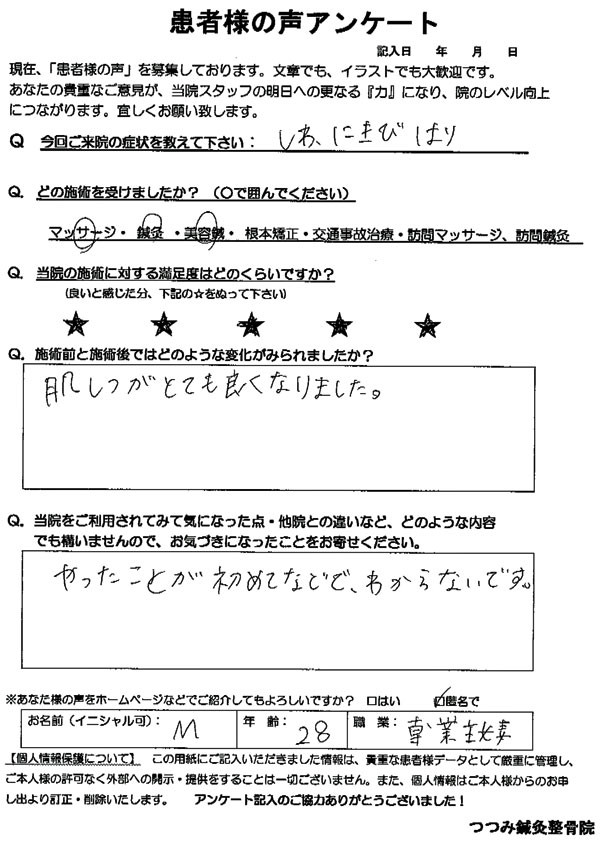 患者様の声アンケート
記入日　　年　　月　　日
現在、「患者様の声」を募集しております。文章でも、イラストでも大歓迎です。
あなたの貴重なご意見が、当院スタッフの明日への更なる『力』になり、院のレベル向上
につながります。宜しくお願い致します。
Q 今回ご来院の症状を教えて下さい： しわ、にきび はり
Q. どの施術を受けましたか？（〇で囲んでください）
マッサージ・ 鍼灸 ・美容鍼・ 根本矯正・交通事故治療・訪問マッサージ、訪問鍼灸
Q. 当院の施術に対する満足度はどのくらいですか？
（良いと感じた分、下記の☆をぬって下さい）
★ ★ ★ ★ ★
Q. 施術前と施術後ではどのような変化がみられましたか？
肌しつがとても良くなりました。
Q. 当院をご利用されてみて気になった点・他院との違いなど、どのような内容
でも構いませんので、お気づきになったことをお寄せください。
やったことが初めてなどで、わからないです。
※あなた様の声をホームページなどでご紹介してもよろしいですか？ □はい ☑匿名で
お名前（イニシャル可）： M 年 齢： 28 職 業： 専業主
【個人情報保護について】 この用紙にご記入いただきました情報は、貴重な患者様データとして厳重に管理し、
ご本人様の許可なく外部への開示・提供をすることは一切ございません。また、個人情報はご本人様からのお申
し出より訂正・削除いたします。 アンケート記入のご協力ありがとうございました！
つつみ鍼灸整骨院